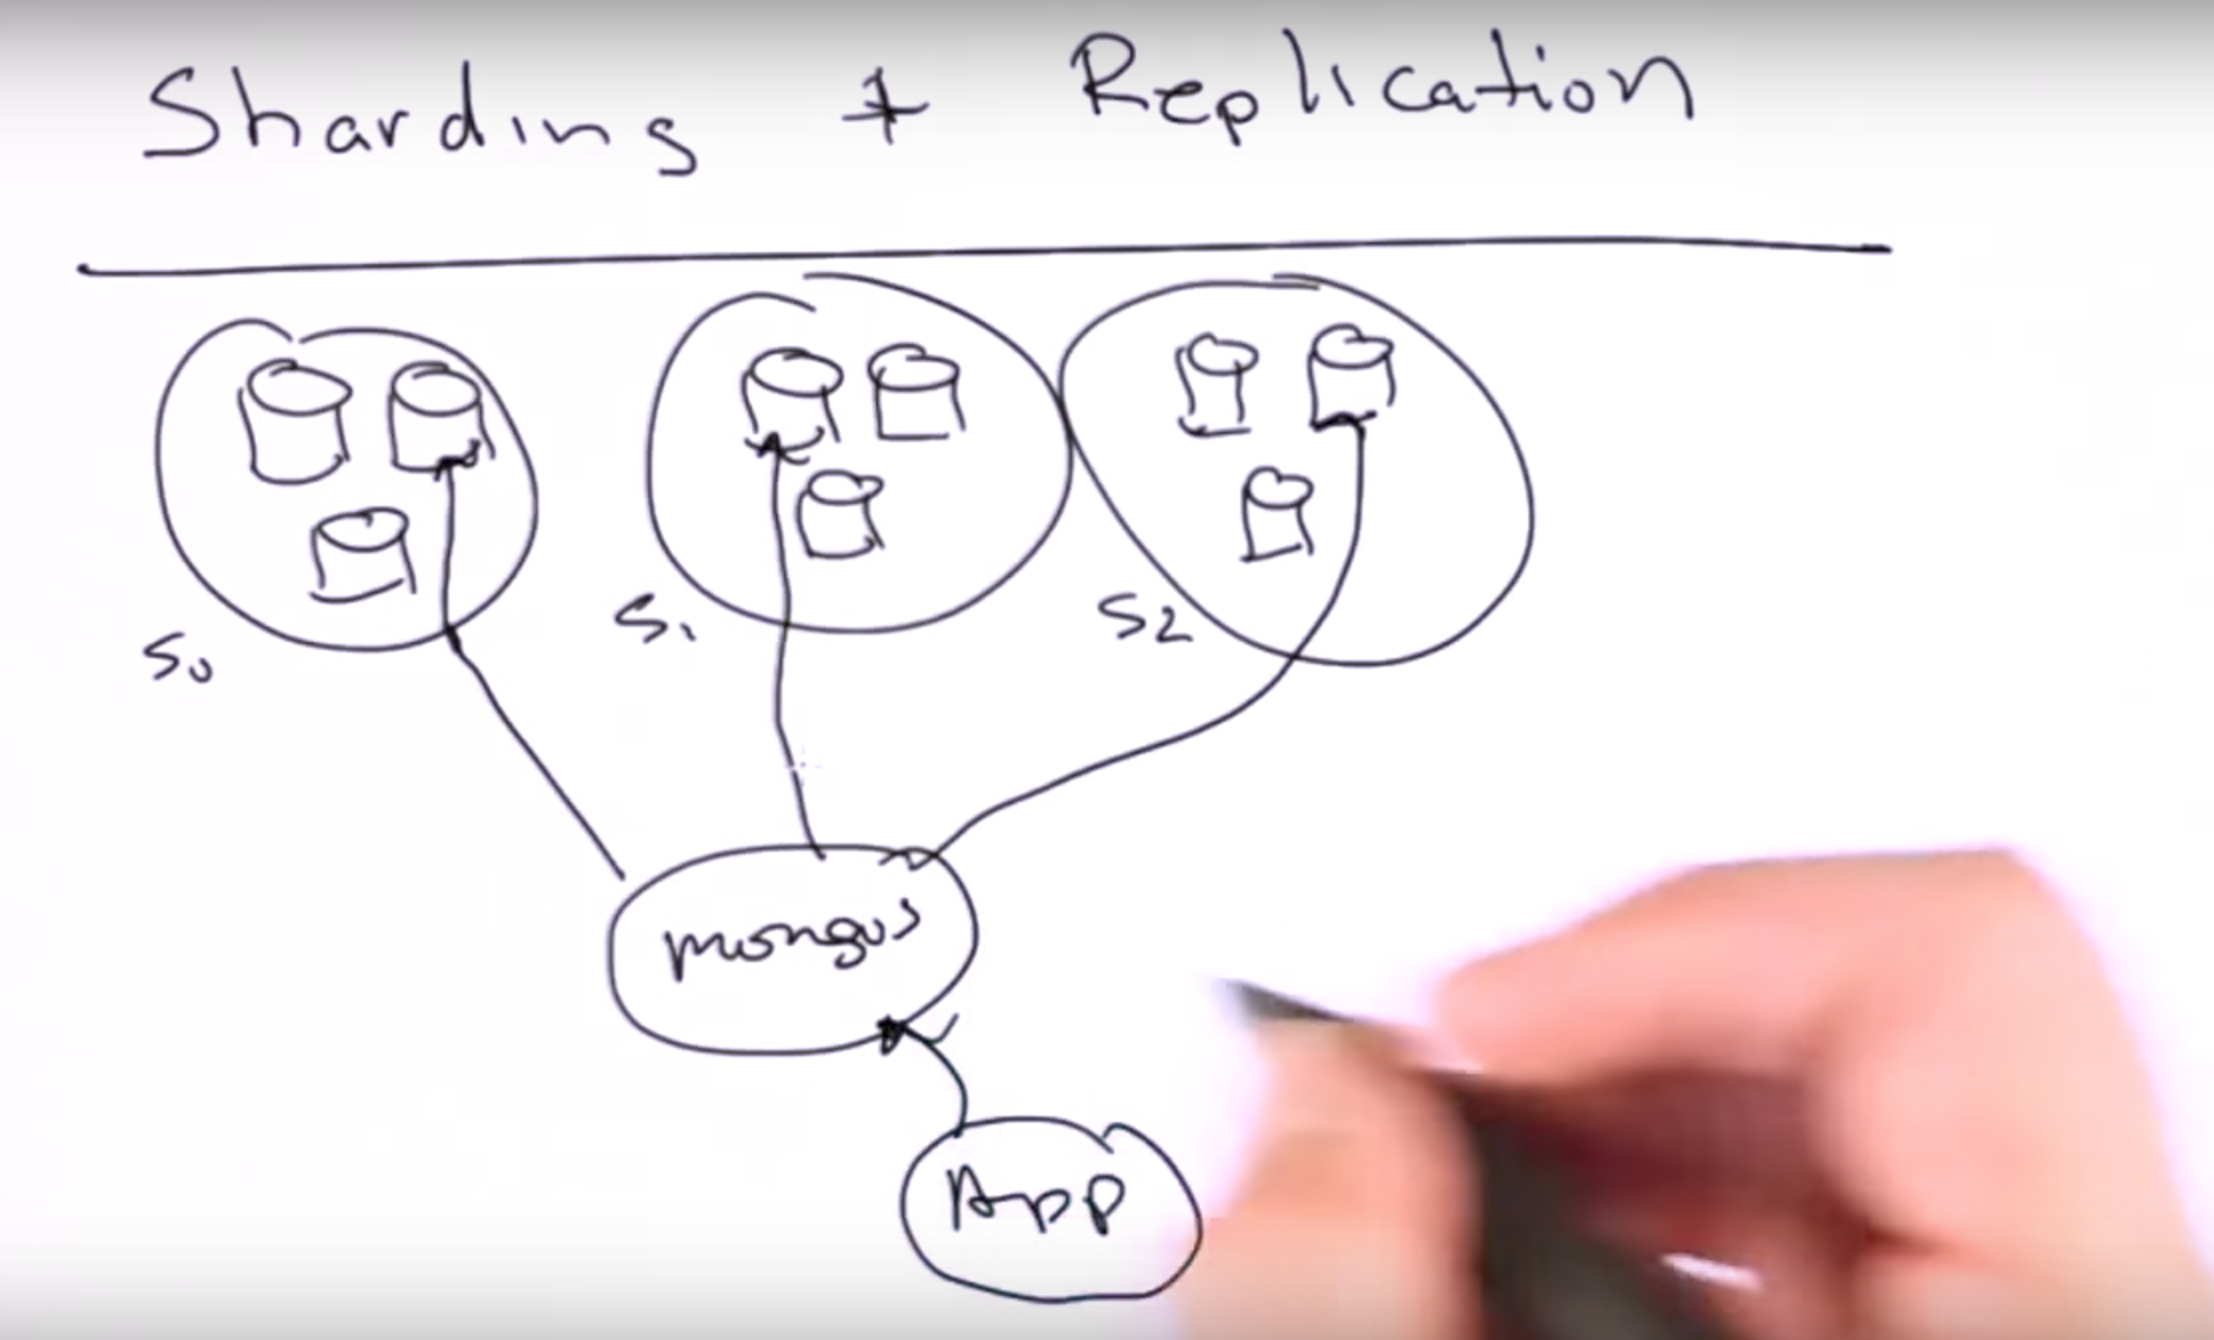 Sharding + Replication
S0
S1
S2
mongos
App